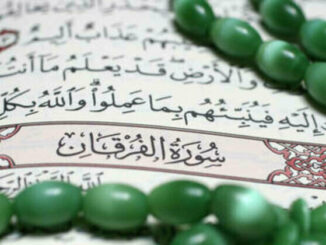 عَذَابٌ أَلِيمٌ
وَٱلْأَرْضِ قَدْ يَعْلَمُ مَآ أَنتُ
إِلَيْهِ فَيُنَبِّئُهُم بِمَا عَمِلُوا۟ وَٱللَّهُ بِكُلِّ
سُورَةُ الفُرْقَانِ